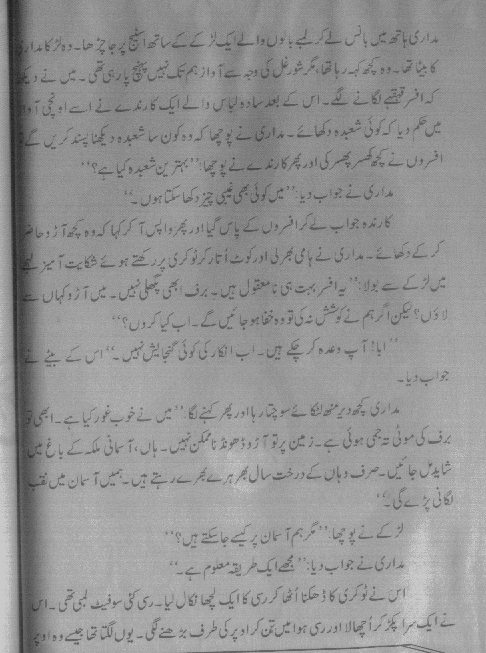 مداری ہاتھ میں بانس لے کر لمبے بالوں والے ایک لڑکے کے ساتھ اسٹیج پر جا چڑھا۔ وہ لڑکا مداری
کا بیٹا تھا۔ وہ کچھ کہہ رہا تھا، مگر شور غل کی وجہ سے آواز ہم تک نہیں پہنچ پا رہی تھی۔ میں نے دیکھا
کہ افسر قہقہے لگانے لگے۔ اس کے بعد سادہ لباس والے ایک کارندے نے اسے اونچی آواز
میں حکم دیا کہ کوئی شعبدہ دکھائے۔ مداری نے پوچھا کہ وہ کون سا شعبدہ دیکھنا پسند کریں گے؟
افسروں نے کچھ کھسر پھسر کی اور پھر کارندے نے پوچھا: ”بہترین شعبدہ کیا ہے؟“
مداری نے جواب دیا: ”میں کوئی بھی غیبی چیز دکھا سکتا ہوں۔“
کارندہ جواب لے کر افسروں کے پاس گیا اور پھر واپس آ کر کہا کہ وہ کچھ آڑو حاضر
کر کے دکھائے۔ مداری نے ہامی بھر لی اور کوٹ اُتار کر ٹوکری پر رکھتے ہوئے شکایت آمیز لہجے
میں لڑکے سے بولا: ”یہ افسر بہت ہی نامعقول ہیں۔ برف ابھی پگھلی نہیں۔ میں آڑو کہاں سے
لاؤں؟ لیکن اگر ہم نے کوشش نہ کی تو وہ خفا ہو جائیں گے۔ اب کیا کروں؟“
”ابا! آپ وعدہ کر چکے ہیں۔ اب انکار کی کوئی گنجایش نہیں۔“ اس کے بیٹے نے
جواب دیا۔
مداری کچھ دیر منھ لٹکائے سوچتا رہا اور پھر کہنے لگا: ”میں نے خوب غور کیا ہے۔ ابھی تو
برف کی موٹی تہ جمی ہوئی ہے۔ زمین پر تو آڑو ڈھونڈنا ناممکن نہیں۔ ہاں، آسمانی ملکہ کے باغ میں
شاید مل جائیں۔ صرف وہاں کے درخت سال بھر ہرے بھرے رہتے ہیں۔ ہمیں آسمان میں نقب
لگانی پڑے گی۔“
لڑکے نے پوچھا: ”مگر ہم آسمان پر کیسے جا سکتے ہیں؟“
مداری نے جواب دیا: ”مجھے ایک طریقہ معلوم ہے۔“
اس نے ٹوکری کا ڈھکنا اُٹھا کر رسی کا ایک لچھا نکال لیا۔ رسی کئی سو فیٹ لمبی تھی۔ اس
نے ایک سرا پکڑ کر اُچھالا اور رسی ہوا میں تن کر اوپر کی طرف بڑھنے لگی۔ یوں لگتا تھا جیسے وہ اوپر